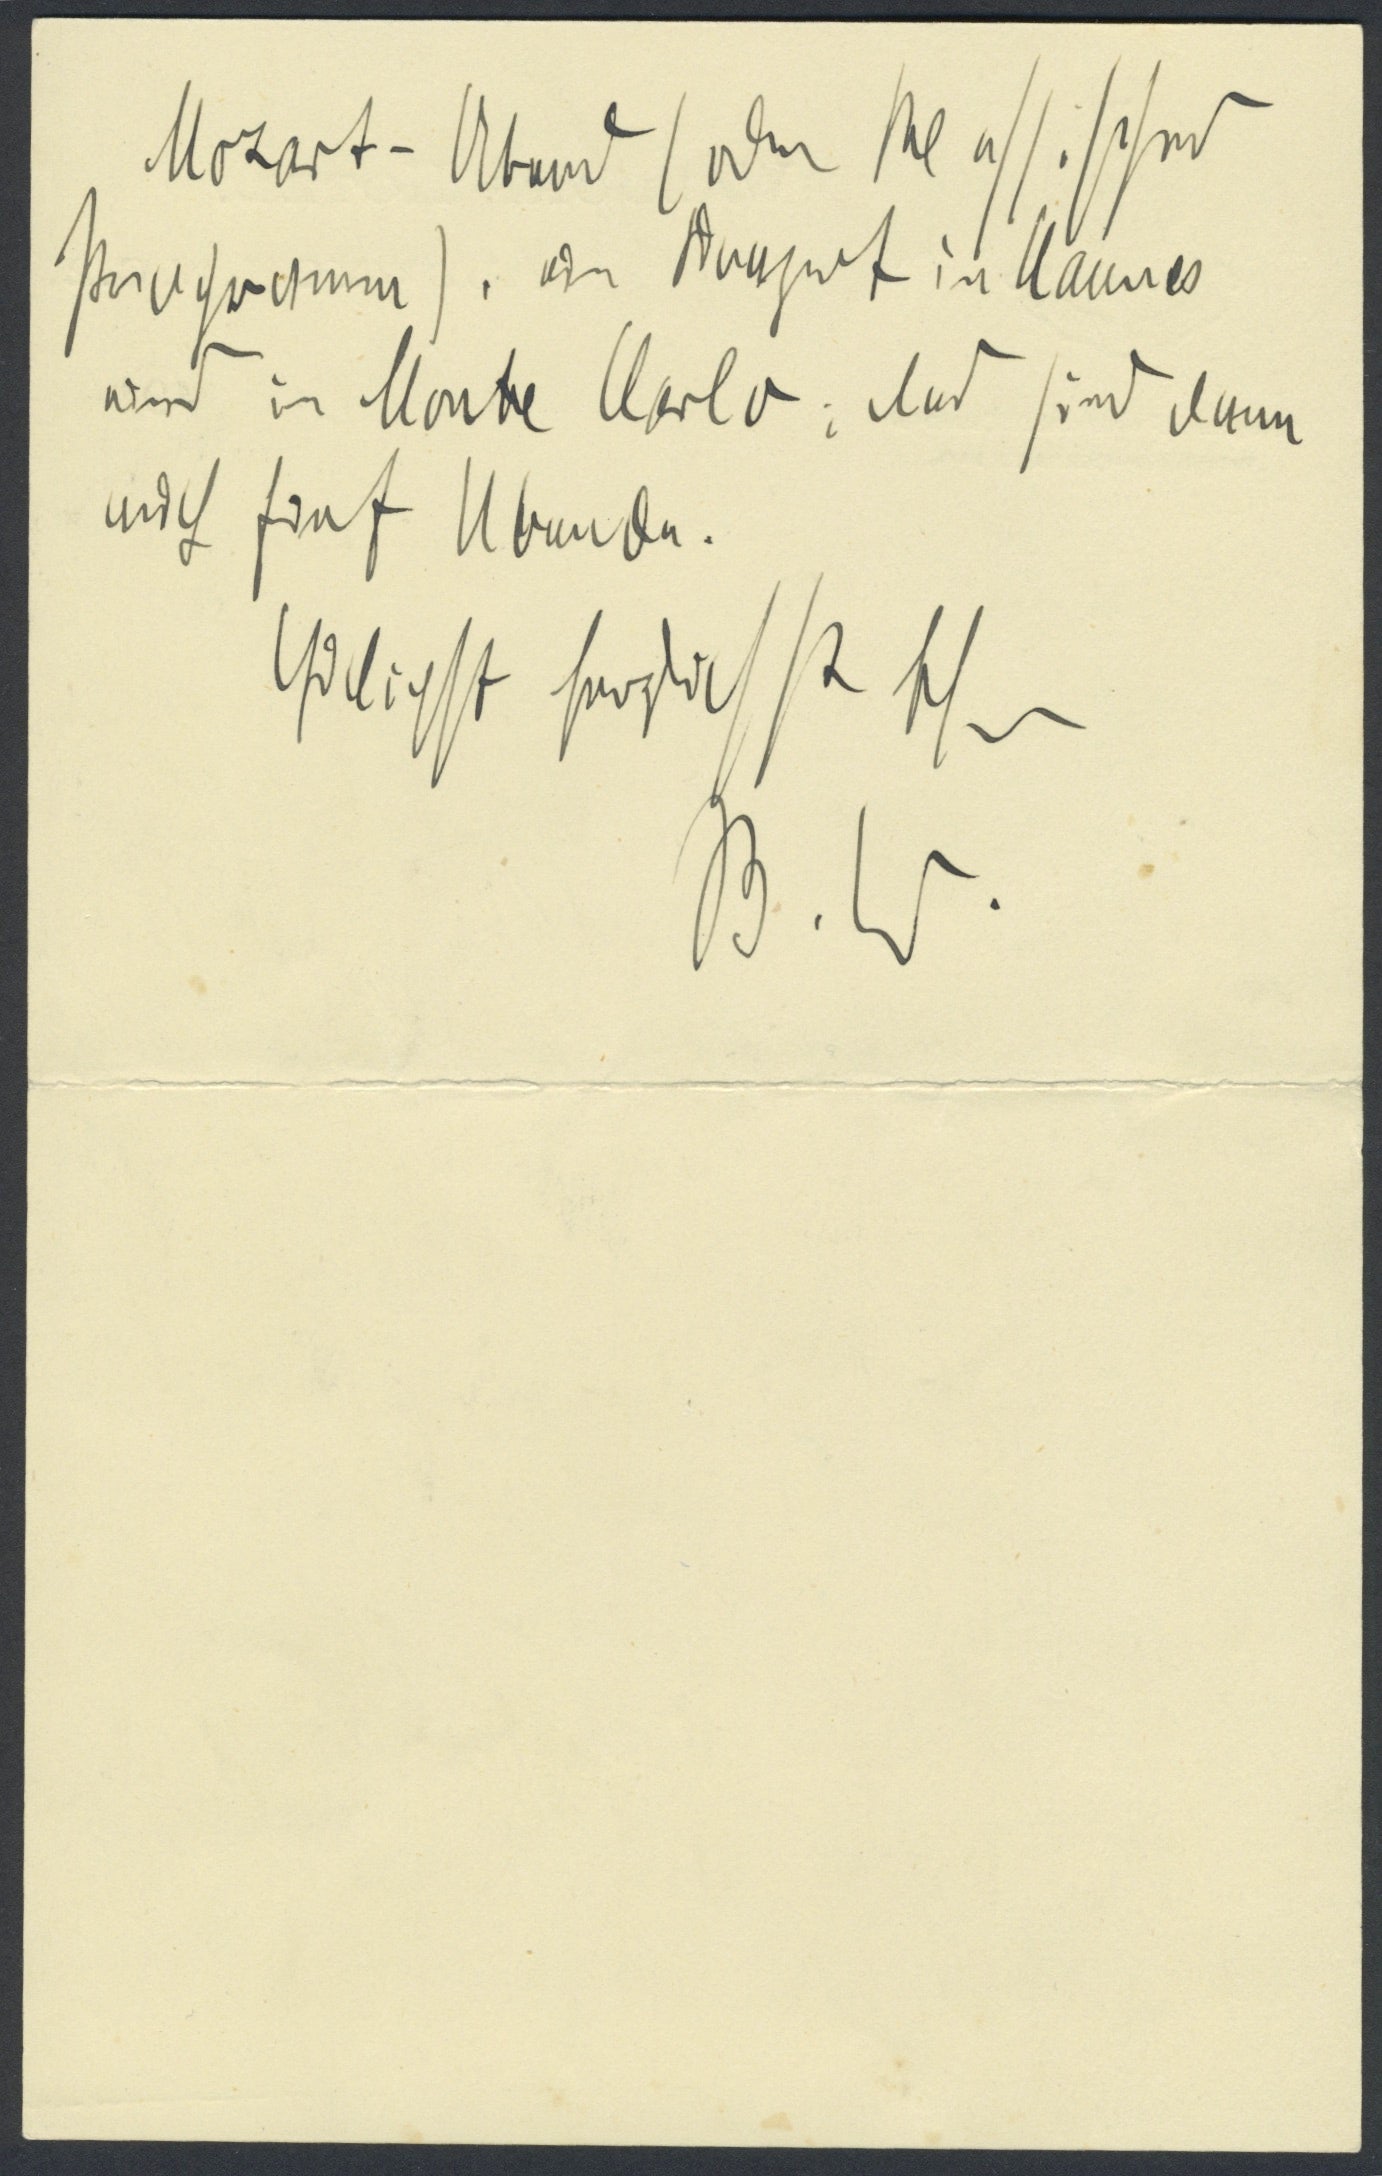 Mozart-Abend (oder klassisches
Programm), ein Konzert in Cannes
und in Monte Carlo; das sind dann
auch fünf Abende.
Eiligst herzlichst Ihr
B. W.